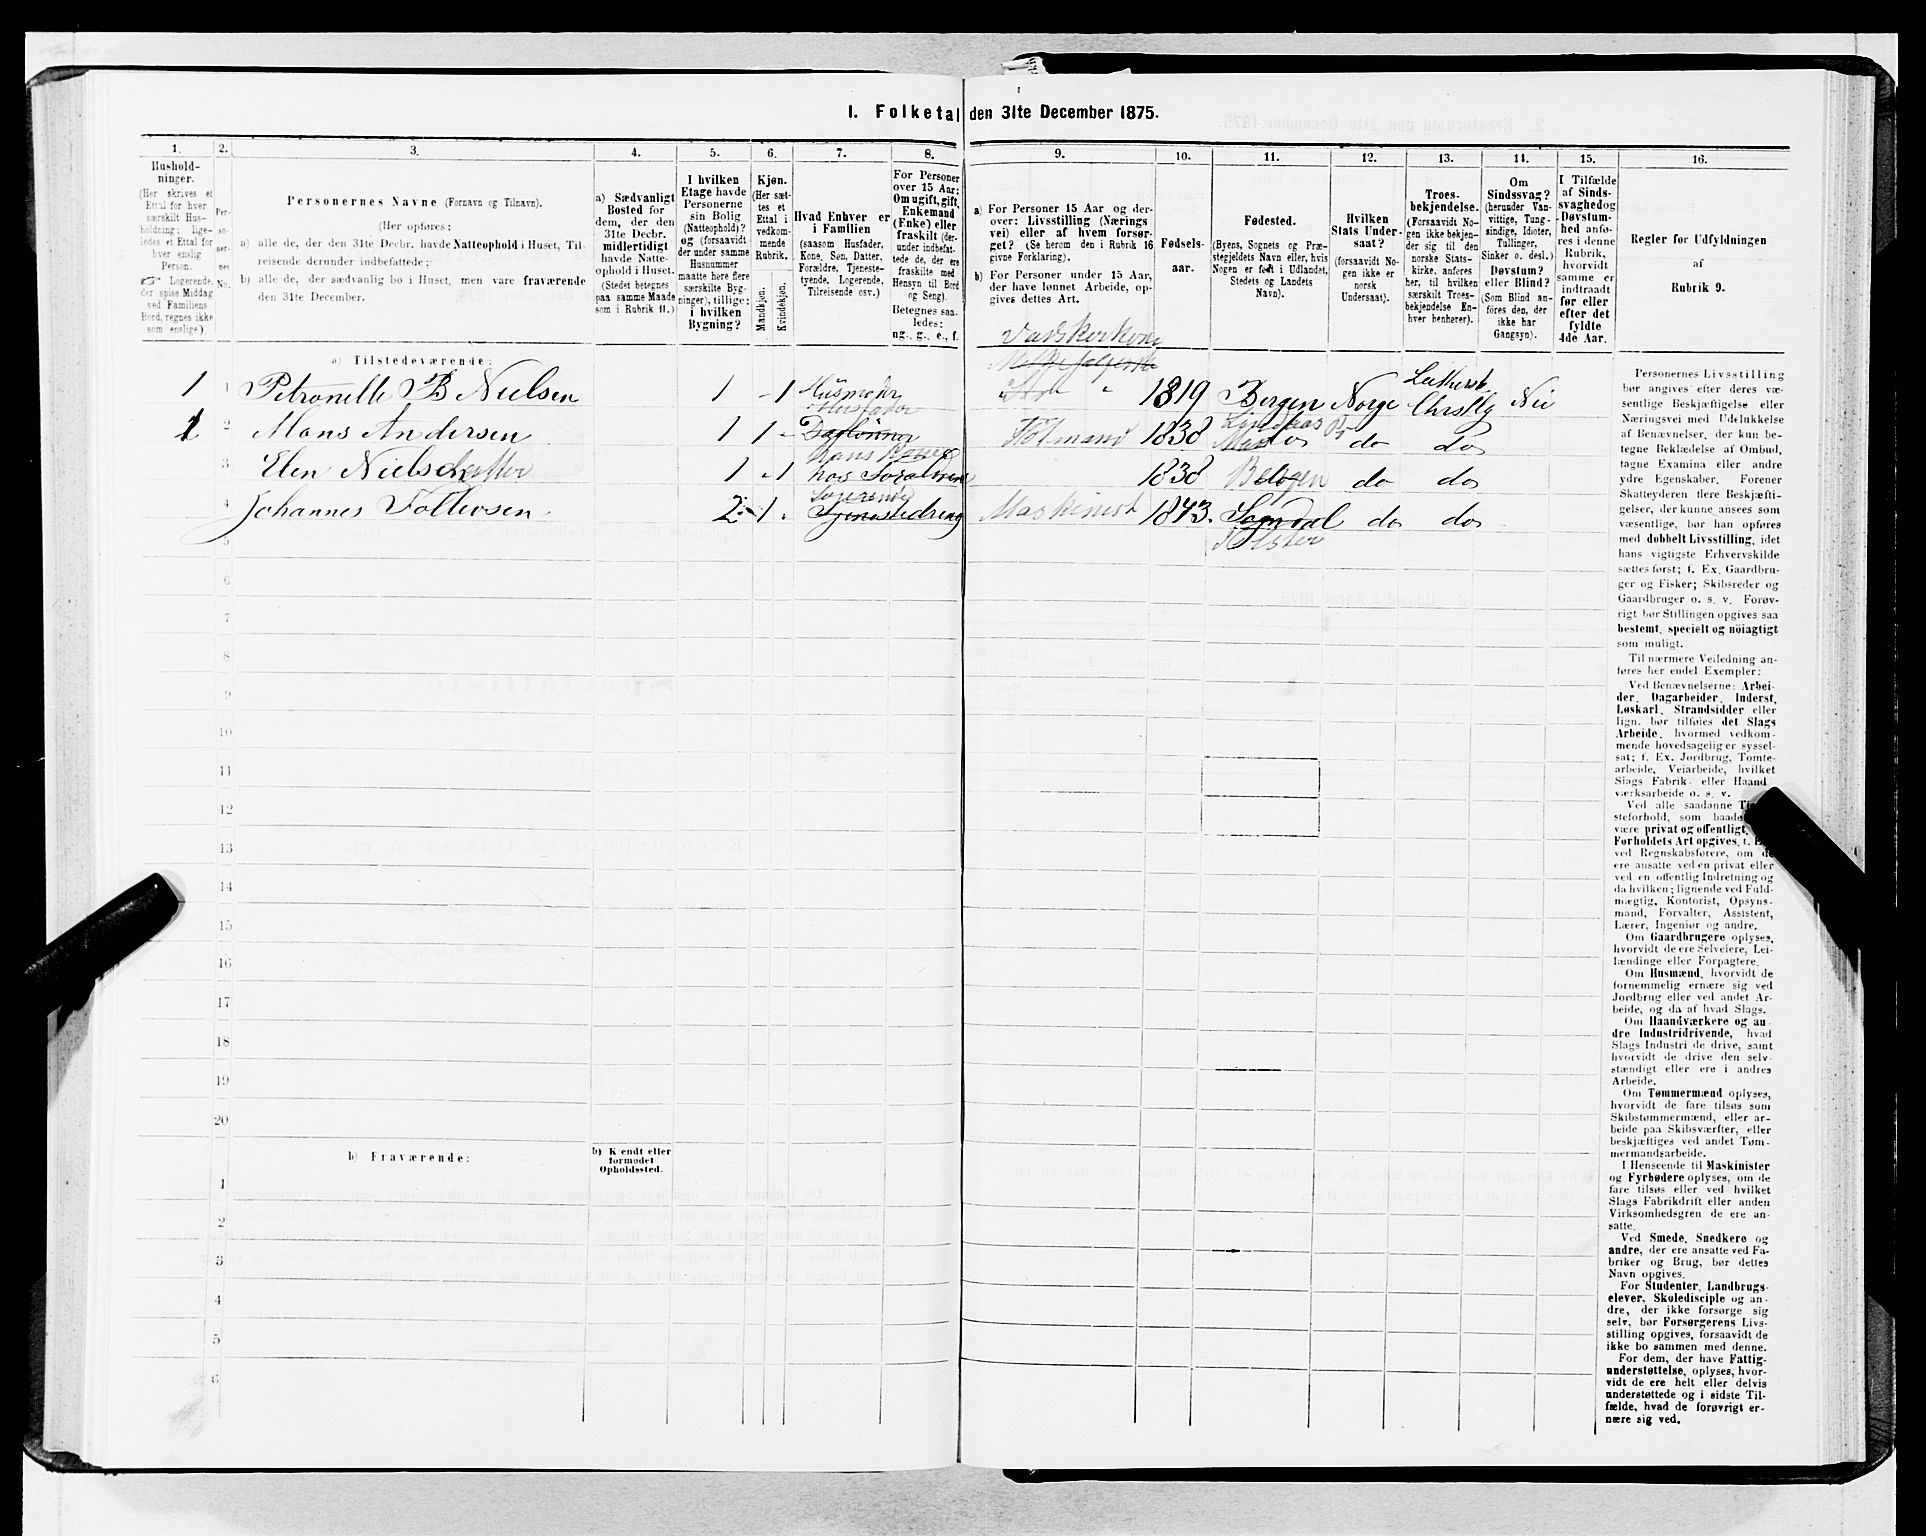 I. Folketal den 31te December 1875.
1.
2.
3.
4.
5.
6.
7.
8.
9.
10.
11.
12.
13.
14.
15.
16.
Hushold-
ninger.
(Her skrives et
Ettal for hver
særskilt Hus-
holdning; lige-
ledes et Ettal for
hver enslig
Person.
Logerende,
der spise Middag
ved Familiens
Bord, regnes ikke
som enslige).
Per-
so-
ner-
nes
No.
Personernes Navne (Fornavn og Tilnavn).
(Her opføres:
a) alle de, der den 31te Decbr. havde Natteophold i Huset, Til-
reisende derunder indbefattede;
b) alle de, der sædvanlig bo i Huset, men vare fraværende
den 31te December.
a) Sædvanligt
Bosted for
dem, der den
31te Decbr.
midlertidigt
havde Natte-
ophold i Huset.
(Stedet betegnes
paa samme Maade
som i Rubrik 11.)
I hvilken
Etage havde
Personerne
sin Bolig
(Natteophold)?
og (forsaavidt
der under samme
Husnummer
maatte høre flere
særskilte Byg-
ninger), tillige:
i hvilken
Bygning?
Kjøn.
(Her sæt-
tes et
Ettal i
vedkom-
mende
Rubrik.
Mandkjøn.
Kvindekjøn.
Hvad Enhver er
i Familien
(saasom Husfader,
Kone, Søn, Datter,
Forældre, Tjeneste-
tyende, Logerende,
Tilreisende osv.)
For Personer
over 15 Aar:
Om ugift, gift,
Enkemand
(Enke) eller
fraskilt (der-
under indbefat-
tede de, der ere
fraskilte med
Hensyn til Bord
og Seng).
Betegnes saa-
ledes:
ng., g., e., f.
a) For Personer 15 Aar og der-
over: Livsstilling (Nærings
vei) eller af hvem forsør-
get? (Se herom den i Rubrik 16
givne Forklaring).
b) For Personer under 15 Aar,
der have lønnet Arbeide, op-
gives dettes Art.
Fødsels-
aar.
Fødested.
(Byens, Sognets og Præ-
stegjeldets Navn eller, hvis
Nogen er født i Udlandet,
Stedets og Landets
Navn).
Hvilken
Stats Under-
saat?
(forsaavidt No-
gen ikke er
norsk
Undersaat).
Troes-
bekjendelse.
(Forsaavidt No-
gen ikke bekjen-
der sig til den
norske Stats-
kirke, anføres
her, til hvilken
særskilt Troes-
bekjendelse En-
hver henhører).
Om
Sindssvag?
(herunder Van-
vittige, Tung-
sindige, Idioter,
Tullinger,
Sinker o. desl.)
Døvstum?
eller Blind?
(Som Blind an-
føres den, der
ikke har
Gangsyn).
I Tilfælde
af Sinds-
svaghed og
Døvstum-
hed anfø-
res i denne
Rubrik,
hvorvidt
samme er
indtraadt
før eller
efter det
fyldte
4de Aar.
Regler for Udfyldningen
af
Rubrik 9.
a) Tilstedeværende:
Vadskerkone
1 1 Petronelle B Nielsen 1 1 Husmoder 1819 Bergen Norge Luthersk Christlig Nei
1 2 Mons Andersen 1 1 Husfader Daglønner 1838 Lindaas do do
3 Elen Nielsdatter 1 1 hans Kone hos Forældrene 1838 Bergen do do
4 Johannes Toltersen 2 1 Logerende Maskinist 1843 Sogndal do do
Holster
5
6
7
8
9
10
11
12
13
14
15
16
17
18
19
20
b) Fraværende:
b) Kendt eller
formodet
Opholdssted.
1
2
3
4
5
6
Personernes Livsstilling
bør angives efter deres væ-
sentlige Beskjæftigelse eller
Næringsvei med Udelukkelse
af Benævnelser, der kun be-
tegne Beklædelse af Ombud,
tagne Examina eller andre
ydre Egenskaber. Forener
Skatteyderen flere Beskjæfti-
gelser, der kunne ansees som
væsentlige, bør han opføres
med dobbelt Livsstilling, idet
hans vigtigste Erhvervskilde
sættes først; f. Ex. Gaardbru-
ger og Fisker; Skibsreder og
Gaardbruger o. s. v. Forøv-
rigt bør Stillingen opgives saa
bestemt, specielt og nöiagtigt
som muligt.
Til nærmere Veiledning an-
føres her endel Exempler:
Ved Benævnelserne: Arbei-
der, Dagarbeider, Inderst,
Løskarl, Strandsidder eller
lign. bør tilføies det Slags
Arbeide, hvormed vedkom-
mende hovedsagelig er syssel-
sat; f. Ex. Jordbrug, Tomte-
arbeide, Veiarbeide, hvilket
Slags Fabrik- eller Haand-
værksarbeide o. s. v.
Ved alle saadanne
steforhold, som baade
være privat og offentligt,
Forholdets Art opgives, f. E
ved Regnskabsførere, om de
ere ansatte ved en privat eller
ved en offentlig Indretning og
da hvilken; lignende ved Fuld-
mægtig, Kontorist, Opsyns-
mand, Forvalter, Assistent,
Lærer, Ingeniør og andre.
Om Gaardbrugere oplyses,
hvorvidt de ere Selveiere, Lei-
lændinge eller Forpagtere.
Om Husmænd, hvorvidt de
fornemmelig ernære sig ved
Jordbrug eller ved andet Ar-
beide, og da af hvad Slags.
Om Haandværkere og an-
dre Industridrivende, hvad
Slags Industri de drive, samt
hvorvidt de drive den selv-
stændigt eller ere i andres
Arbeide.
Om Tømmermænd oplyses,
hvorvidt de fare tilsøs som
Skibstømmermænd, eller ar-
beide paa Skibsværfter, eller
beskjæftiges ved andet Tøm-
mermandsarbeide.
I Henseende til Maskinister
og Fyrbødere oplyses, om de
fare tilsøs eller ved hvilket
Slags Fabrikdrift eller anden
Virksomhedsgren de ere an-
satte.
Ved Smede, Snedkere og
andre, der ere ansatte ved Fa-
briker og Brug, bør dettes
Navn opgives.
For Studenter, Landbrugs-
elever, Skoledisciple og an-
dre, der ikke forsørge sig
selv, bør Forsørgerens Livs-
stilling opgives, forsaavidt de
ikke bo sammen med denne.
For dem, der have Fattig-
understøttelse, oplyses, hvor-
vidt de ere helt eller delvis
understøttede og i sidste Til-
fælde, hvad de forøvrigt er-
nære sig ved.